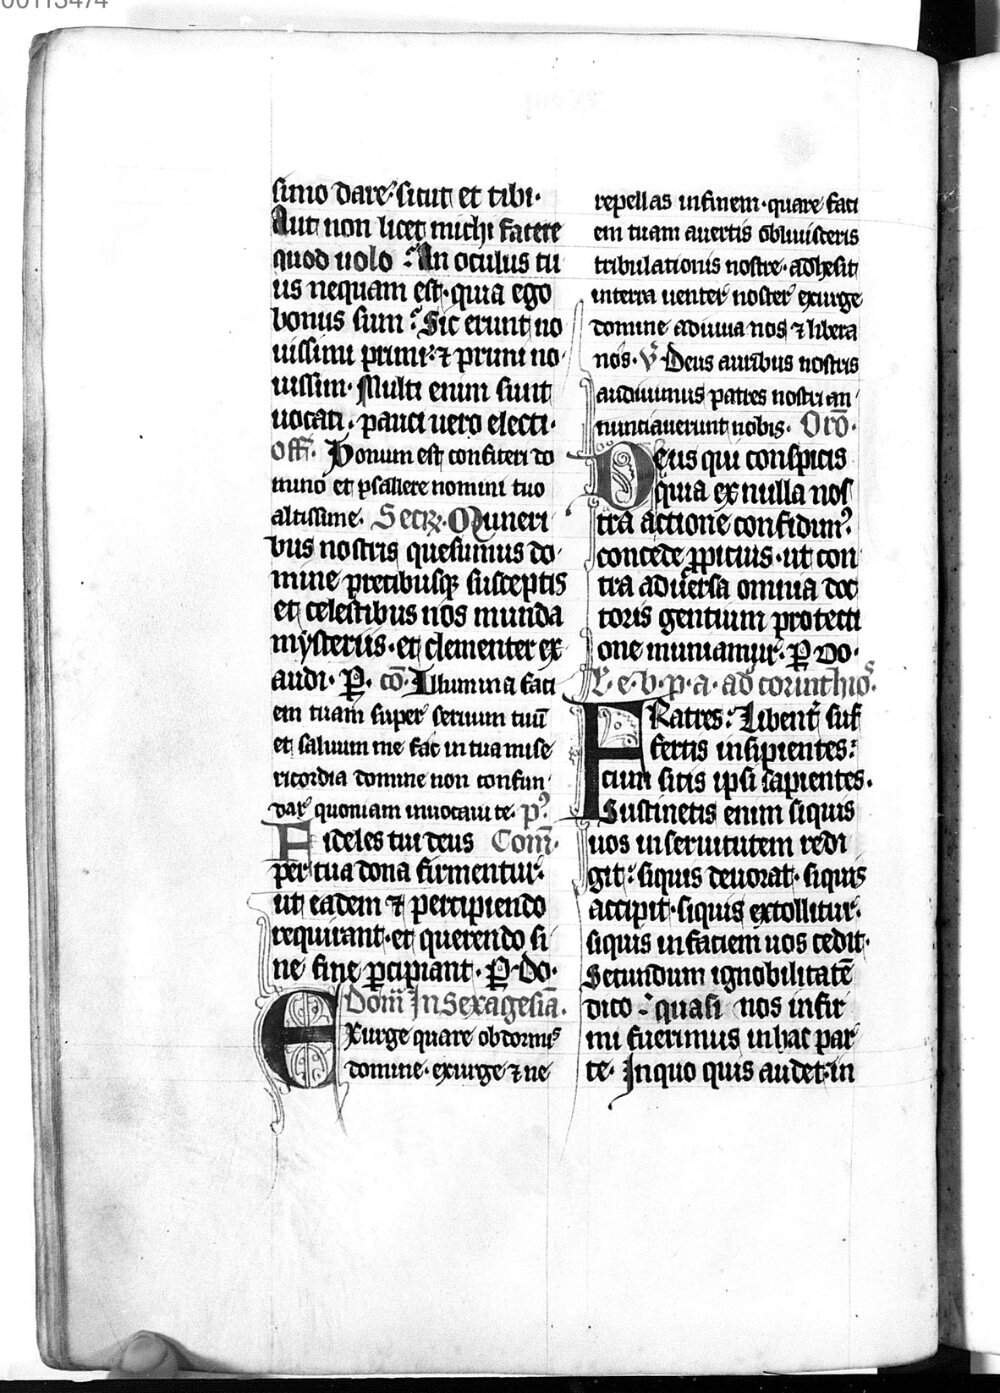 00113474
simo dare? sicut et tibi.
Aut non licet michi facere
quod uolo? An oculus tu
us nequam est. quia ego
bonus sum? Sic erunt no
uissimi primi: ⁊ primi no
uissimi. Multi enim sunt
uocati. pauci uero electi.
Off̄. Bonum est confiteri do
mino et psallere nomini tuo
altissime. Secꝝ. Muneri
bus nostris quesumus do
mine precibusqꝫ susceptis
et celestibus nos munda
mysteriis. et clementer ex
audi. P̱. cō. Illumina faci
em tuam super seruum tuū
et saluum me fac in tua mise
ricordia domine non confun
dar quoniam inuocaui te. pꝰ
Fideles tui deus Com̄.
per tua dona firmentur.
ut eadem ⁊ percipiendo
requirant. et querendo si
ne fine ꝑcipiant. P̱. Do.
Dom̄ In Sexagesiā.
Exurge quare obdormis
domine. exurge ⁊ ne
repellas in finem. quare faci
em tuam auertis obliuisceris
tribulationis nostre. adhesit
in terra uenter noster exurge
domine adiuua nos ⁊ libera
nos. V̄ Deus auribus nostris
audiuimus patres nostri an
nunciauerunt nobis. Orō.
Deus qui conspicis
quia ex nulla nos
tra actione confidimꝰ
concede ꝓpicius. ut con
tra aduersa omnia doc
toris gentium protecti
one muniamur. P̱ Do.
L. e. b. p. a. ad corinthioˢ.
FRatres: Libentͬ suf
fertis insipientes:
cum sitis ipsi sapientes.
Sustinetis enim siquis
uos in seruitutem redi
git: siquis deuorat. siquis
accipit. siquis extollitur.
siquis in faciem uos cedit.
Secundum ignobilitatē
dico: quasi nos infir
mi fuerimus in hac par
te. In quo quis audet: in